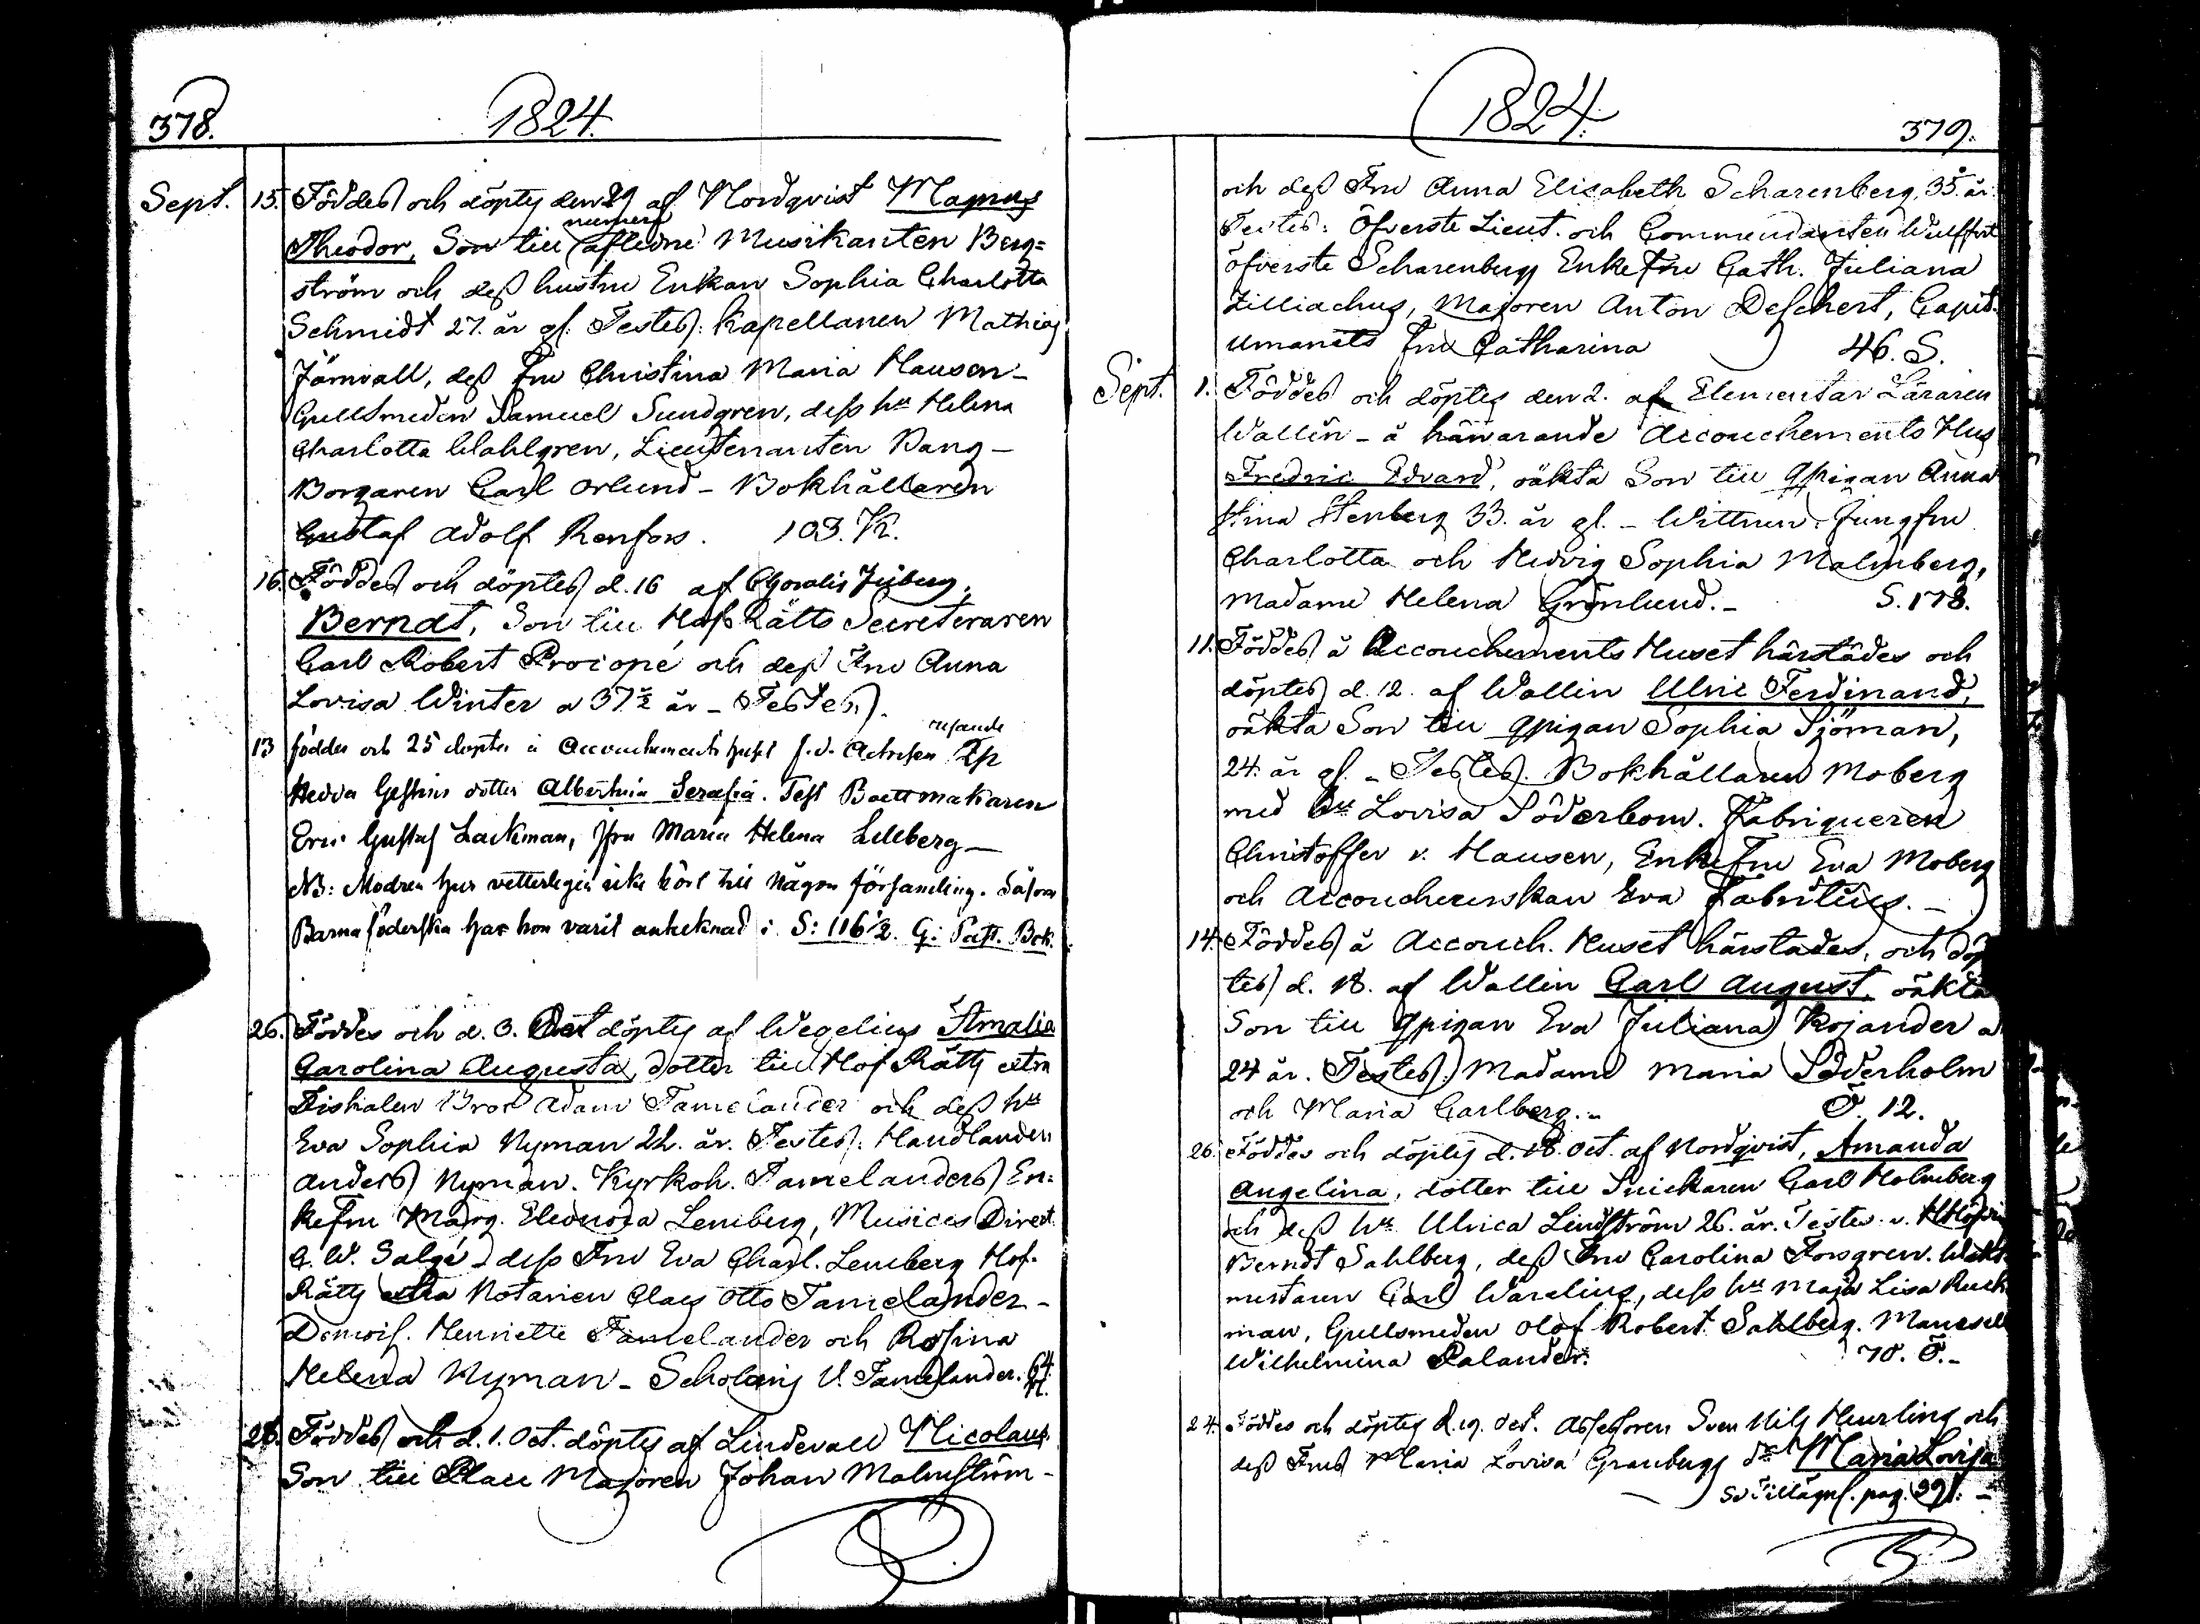 378.
1824.
Sept. 15. Föddes och döptes den 29 af Nordqvist Magnus
numera
Theodor, Son till aflidne Musikanten Berg=
ström och dess hustru Enkan Sophia Charlotta
Schmidt 27. år gl. Testes: Kapellanen Mathias
Järnvall, dess Fru Christina Maria Hausen –
Gullsmeden Samuel Sundgren, dess hu Helena
Charlotta Wahlgren, Lieutenanten Bang –
Borgaren Carl Orlund – Bokhållaren
Gustaf Adolf Renfors. 103. K.
16. Föddes och döptes d. 16 af Choralis
Berndt, Son till Hof Rätts Secreteraren
Carl Robert Procopé och dess Fru Anna
Lovisa Winter a 37½ år – Testes.
13 föddes och 25 döptes i Accouchements huset f.d. Actrisen
Hedda dotter Albertina Serafia. Test Boettmakaren
Eric Gustaf Lackman, Jfru Maria Helena Lillberg –
NB: Modren har vetterligen icke hört till någon församling. Såsom
Barnaföderska har hon varit anteknad i S: 116½. G: Patt. Bok.
26. Föddes och d. 3. Oct döptes af Wegelius Amalia
Carolina Augusta, dotter till Hof Rätts extra
Fiskalen Bror Adam Tamelander och dess hu
Eva Sophia Nyman 22. år. Testes: Handlanden
Anders Nyman. Kyrkoh. Tamelanders En=
kefru Marg. Eleonora Lemberg, Musices Direct.
G. W. Salgé – dess Fru Eva Charl. Lemberg Hof-
Rätts extra Notarien Claes Otto Tamelander –
Demois. Henriette Tamelander och Rosina
Helena Nyman – Scholaris U. Tamelander. 64
28. Föddes och d. 1. Oct. döptes af Lindevall Nicolaus
Son till Place Majoren Johan Malmström –
1824.
379.
och dess Fru Anna Elisabeth Scharenberg, 35. år.
Testes: Öfverste Lieut. och Commendanten Wulffert
öfverste Scharenbergs Enkefru Cath. Juliana
Zilliachus, Majoren Anton Deschert, Capit.
Umanets Fru Catharina 46. S.
Sept. 1. Föddes och döptes den 2. af Elementar Läraren
Wallin – å härvarande Accouchements Hus
Fredric Edvard, oäkta Son till qpigan Anna
Stina Stenberg 33. år gl. – Wittnen: Jungfru
Charlotta och Hedvig Sophia Malmberg,
Madame Helena Grönlund. – S. 178.
11. Föddes å Accouchements Huset härstädes och
döptes d. 12. af Wallin Ulric Ferdinand,
oäkta Son till qpigan Sophia Sjöman,
24. år gl. – Testes. Bokhållaren Moberg
med hu Lovisa Söderbom. Fabriqueren
Christoffer v. Hausen, Enkefru Eva Moberg
och Accoucheurskan Eva Fabritius. –
14. Föddes å Accouch. Huset härstädes, och döp
tes d. 18. af Wallin Carl August, oäkta
Son till qpigan Eva Juliana Kojander a
24 år. Testes: Madame Maria Söderholm
och Maria Carlberg. – Ö. 12.
26. Föddes och döptes d. 18. Oct. af Nordqvist, Amanda
Angelina, dotter till Snickaren Carl Holmberg
och dess hu Ulrica Lindström 26. år. Testes
Berndt Sahlberg, dess Fru Carolina Forsgren.
mästaren Carl Warelius, dess hu Maja Lisa Ruck
man, Gullsmeden Olof Robert Sahlberg. Mamsell
Wilhelmina Palander. 70. Ö. –
24. Föddes och döptes d. 19. Oct. Assessoren Sven Nils Heurling och
dess Frus Maria Lovisa Granbergs dr Maria Lovisa
Se Tillägnf. pag. 391. –